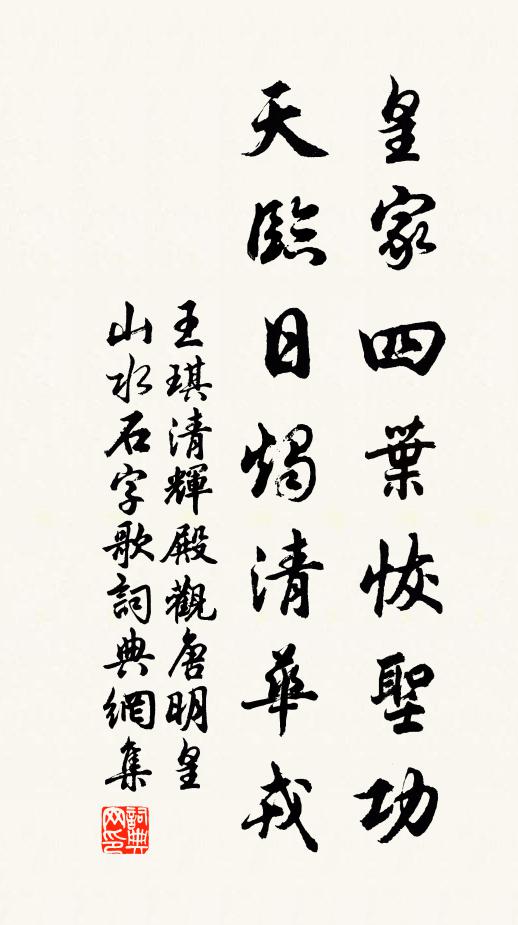 皇家四葉恢聖功
天臨日燭清華戎
王琪清輝殿觀唐明皇
山水石字歌詞典網集
詞典
网印